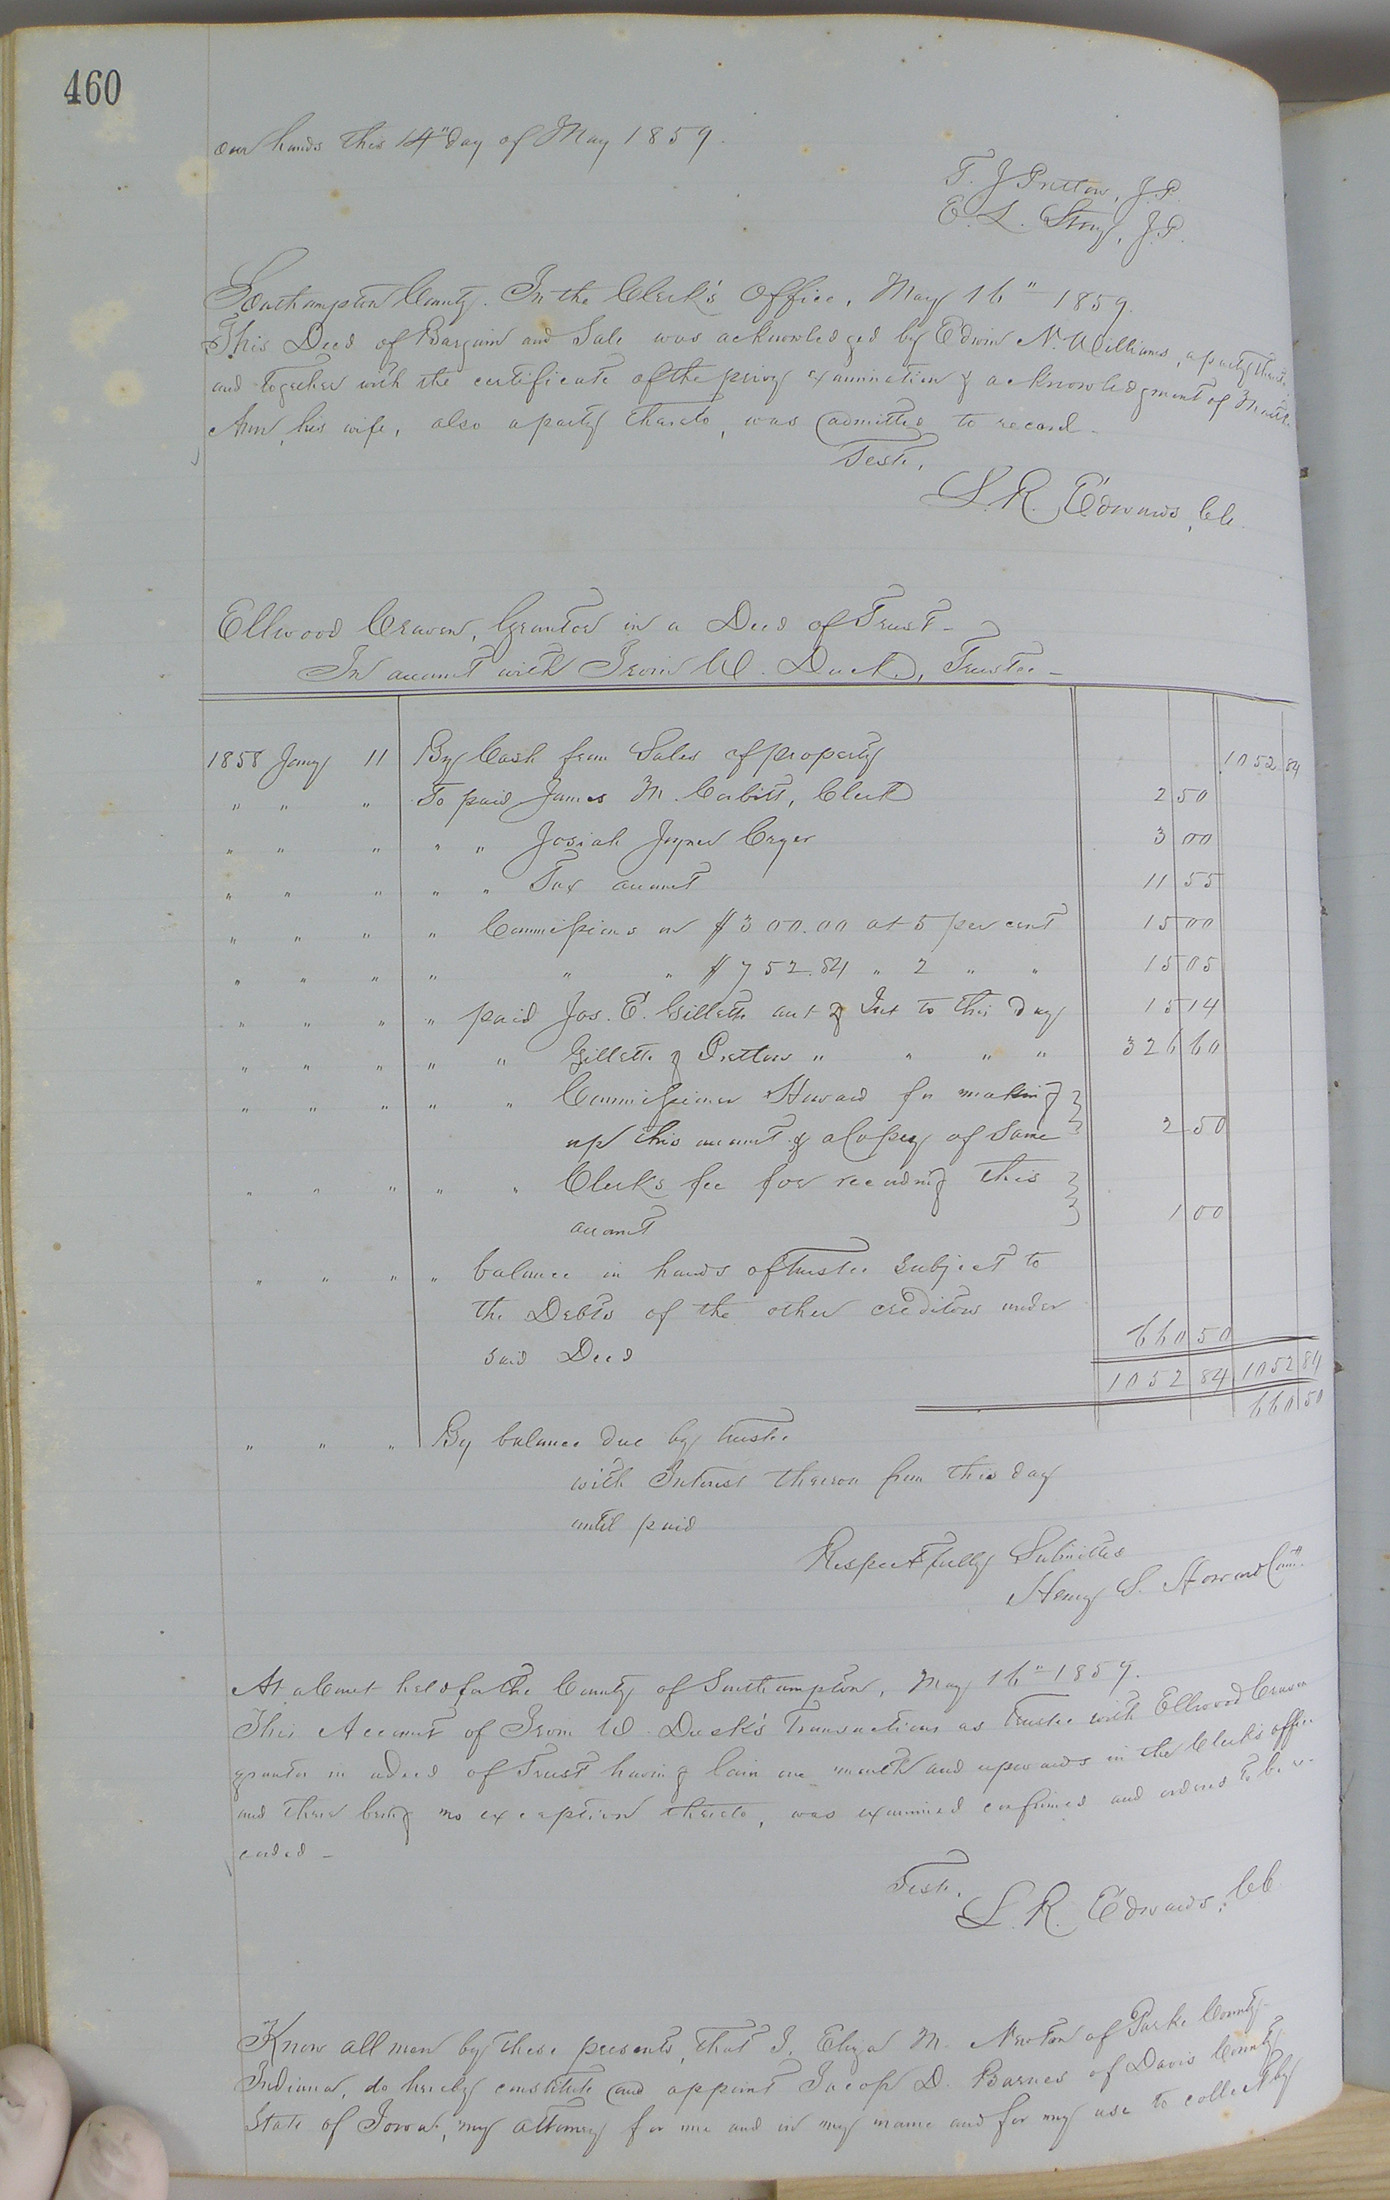 460
our hands this 14" day of May 1859.
T. J. Pretlow, J.P.
E. L. Story, J.P.
Southampton County. In the Clerk's Office, May 16" 1859.
This Deed of Bargain and Sale was acknowledged by Edwin N. Williams, a party thereto
and together with the certificate of the privy examination & acknowledgment of
Ann, his wife, also a party thereto, was admitted to record.
Teste,
L. R. Edwards, Clk.
Ellwood Craven, Grantor in a Deed of Trust -
In account with Irvin W. Duck, Trustee -
1858 Jany 11 By Cash from Sales of property 1052 84
" " " To paid James M. Corbitt, Clerk 2 50
" " " " " Josiah Joyner Cryer 3 00
" " " " " Tax account 11 55
" " " " Commissions on $300.00 at 5 per cent 15 00
" " " " " " $752.84 " 2 " " 15 05
" " " " paid Jos. E. Gillette act & Int to this day 15 14
" " " " " Gillette & Pretlow " " " " 326 60
" " " " " Commissioner Howard for making
up this account & a Copy of Same 2 50
" " " " " Clerks fee for recording this
account 1 00
" " " " balance in hands of trustee subject to
the Debts of the other creditors under
said Deed 660 50
1052 84 1052 84
660 50
" " " By balance due by trustee
with Interest thereon from this day
until paid
Respectfully Submitted
Henry S. Howard Comr.
At a Court held for the County of Southampton, May 16" 1859.
This Account of Irvin W. Duck's Transactions as trustee with Ellwood Craven
grantor in a deed of Trust having lain one month and upwards in the Clerk's office
and there being no exception thereto, was examined confirmed and ordered to be re-
corded -
Teste,
L. R. Edwards, Clk.
Know all men by these presents, that I, Eliza M. Newton of Parke County
Indiana, do hereby constitute and appoint Jacob D. Barnes of Davis County
State of Iowa, my attorney for me and in my name and for my use to collect by